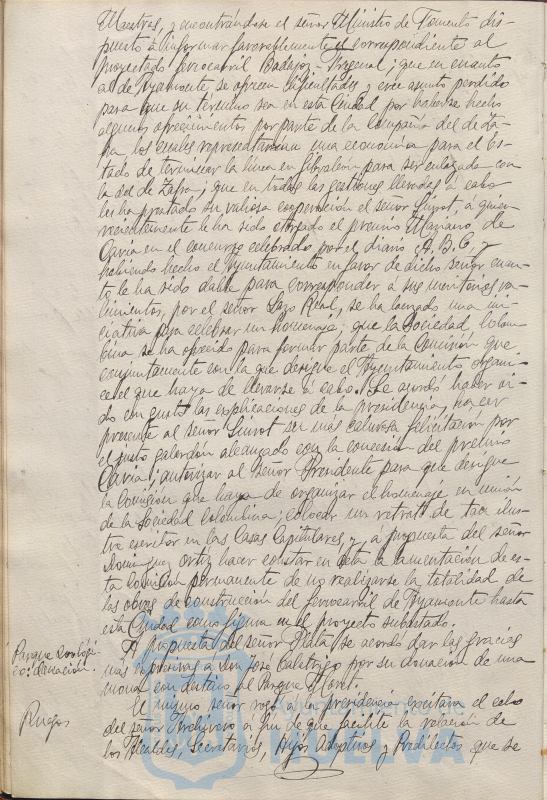 Maestras, y encontrándose el señor Ministro de Fomento dis-
puesto a informar favorablemente el correspondiente al
proyectado ferrocarril Badajoz-Fregenal; que en cuanto
al de Ayamonte, se ofrecen dificultades y cree asunto perdido
para que su término sea en esta Ciudad por haberse hecho
algunos ofrecimientos por parte de la Compañía del de Za-
fra los cuales representarían una economía para el Es-
tado de terminar la línea en Gibraleón para ser enlazada con
la del de Zafra; que en todas las gestiones llevadas a cabo
les ha prestado su valiosa cooperación el señor Siurot, a quien
recientemente le ha sido otorgado el premio Mariano de
Cavia en el concurso celebrado por el diario A.B.C. y
habiendo hecho el Ayuntamiento en favor de dicho señor cuan-
to le ha sido dable para corresponder a sus meritorios va-
limientos, por el señor Lazo Real, se ha lanzado una ini-
ciativa para celebrar un homenaje; que la Sociedad Colom-
bina se ha ofrecido para formar parte de la Comisión que
conjuntamente con la que designe el Ayuntamiento organi-
ce el que haya de llevarse a cabo. Se acordó haber oí-
do con gusto las explicaciones de la presidencia, hacer
presente al señor Siurot su más calurosa felicitación por
el justo galardón alcanzado con la concesión del premio
Cavia; autorizar al señor Presidente para que designe
la Comisión que haya de organizar el homenaje en unión
de la Sociedad Colombina; colocar un retrato de tan ilus-
tre escritor en las Casas Capitulares y, a propuesta del señor
Domínguez Ortiz hacer constar en acta la lamentación de es-
ta Comisión permanente de no realizarse la totalidad de
las obras de construcción del ferrocarril de Ayamonte hasta
esta Ciudad como figura en el proyecto subastado.
Parque zoológi-
co: donación.
A propuesta del señor Plata se acordó dar las gracias
más expresivas a Don José Calatrigo por su donación de una
mona con destino al Parque Moret.
Ruegos
El mismo señor rogó a la presidencia excitara el celo
del señor Archivero a fin de que facilite la relación de
los Alcaldes, Secretarios, Hijos Adoptivos y Predilectos que se
HUELVA